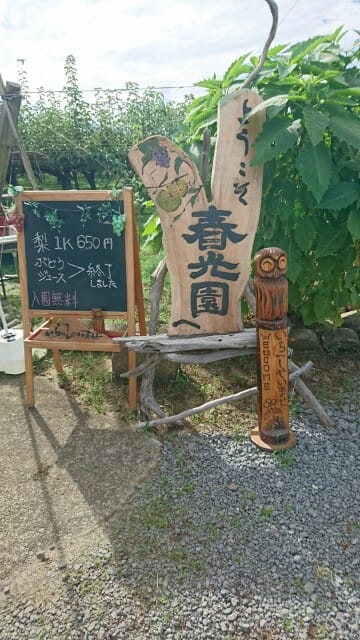 梨 1K 650円
ぶどう
ジュース > 終了
しました
入園無料
ようこそ
春光園
へ
WELCOME